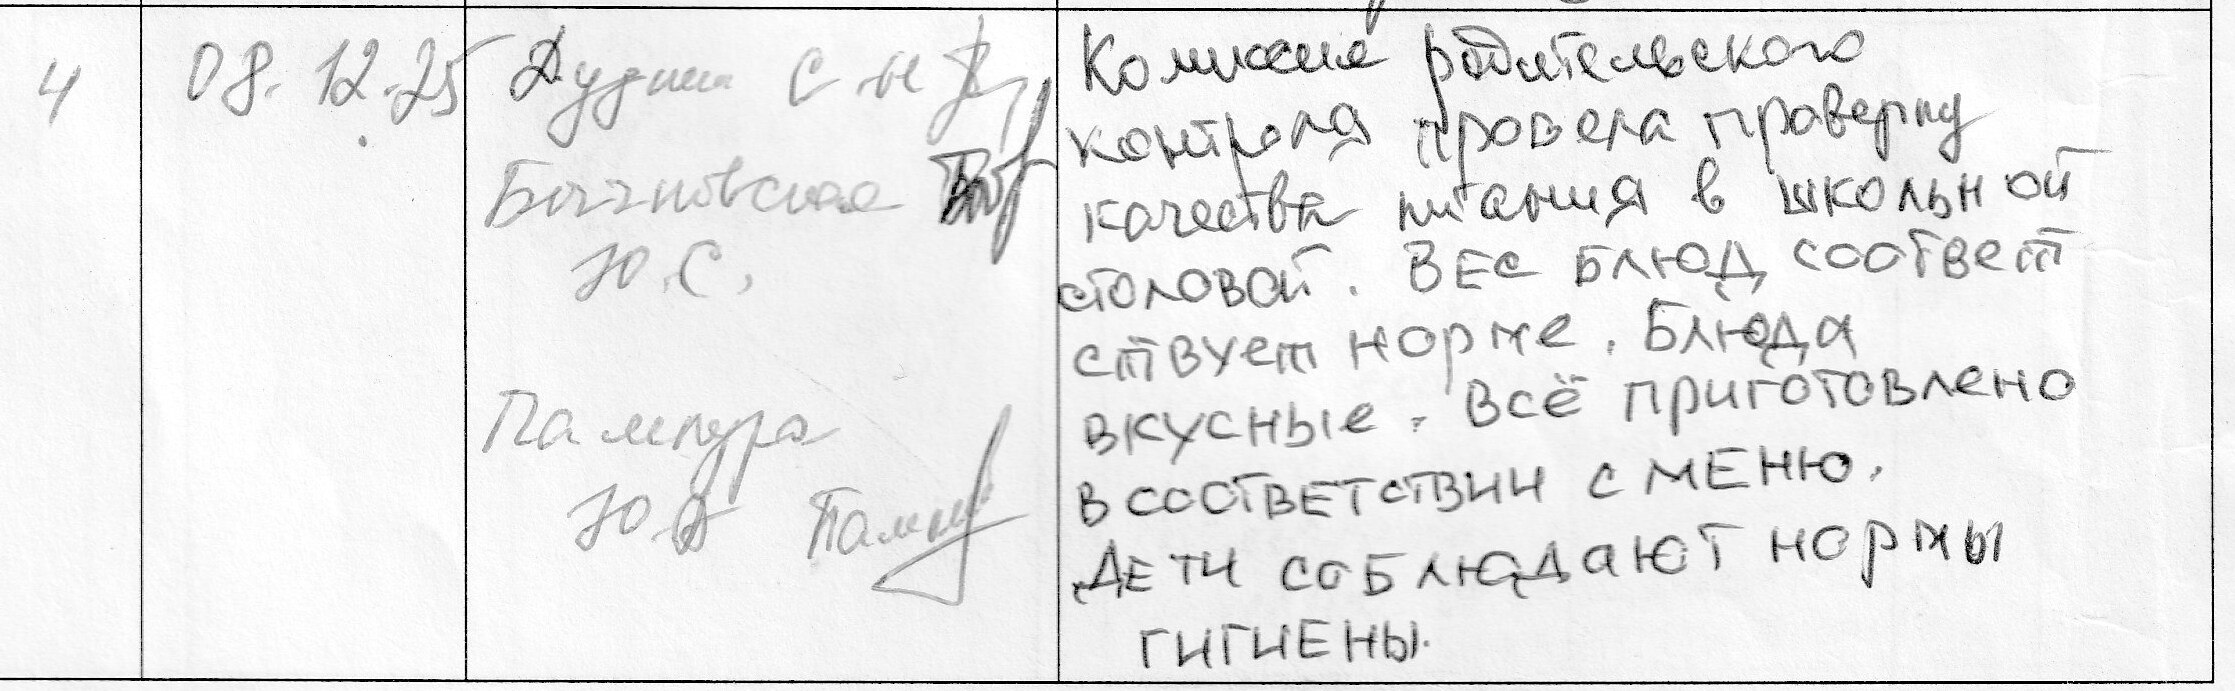 4
08.12.25
С.Н.
Ю.С.
Пампура
Ю.А
Комиссия родительского
контроля провела проверку
качества питания в школьной
столовой. Вес блюд соответ
ствует норме. Блюда
вкусные. Всё приготовлено
в соответствии с меню.
Дети соблюдают нормы
гигиены.